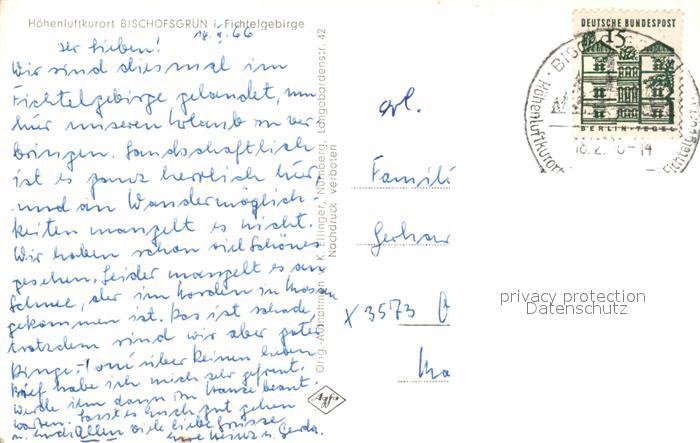 Höhenluftkurort BISCHOFSGRÜN i. Fichtelgebirge
18.2.66
Ihr Lieben!
Wir sind diesmal im
Fichtelgebirge gelandet, um
hier unseren Urlaub zu ver-
bringen. Landschaftlich
ist es ganz herrlich hier,
und an Wandermöglich-
keiten mangelt es nicht.
Wir haben schon viel Schönes
gesehen. Leider mangelt es an
Schnee, der im Norden in Massen
gekommen ist. Das ist schade,
trotzdem sind wir aber guter
Dinge. – Und über Deinen lieben
Brief habe ich mich sehr gefreut.
Werde ihn dann zu Hause beant-
worten. Lasst es Euch gut gehen
u. Euch Allen viele liebe Grüsse
Eure Heinz u. Gerda.
Orig.-Aufnahmen: K. Illinger, Nürnberg, Langobardenstr. 42
Nachdruck verboten
Agfa
DEUTSCHE BUNDESPOST
15
BERLIN-TEGEL
Höhenluftkurort
18.2.
-14
Famili
Gerhar
X 3573
privacy protection
Datenschutz